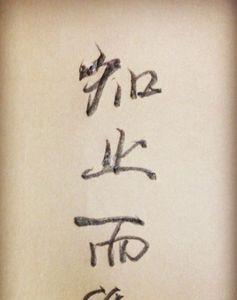 知止而